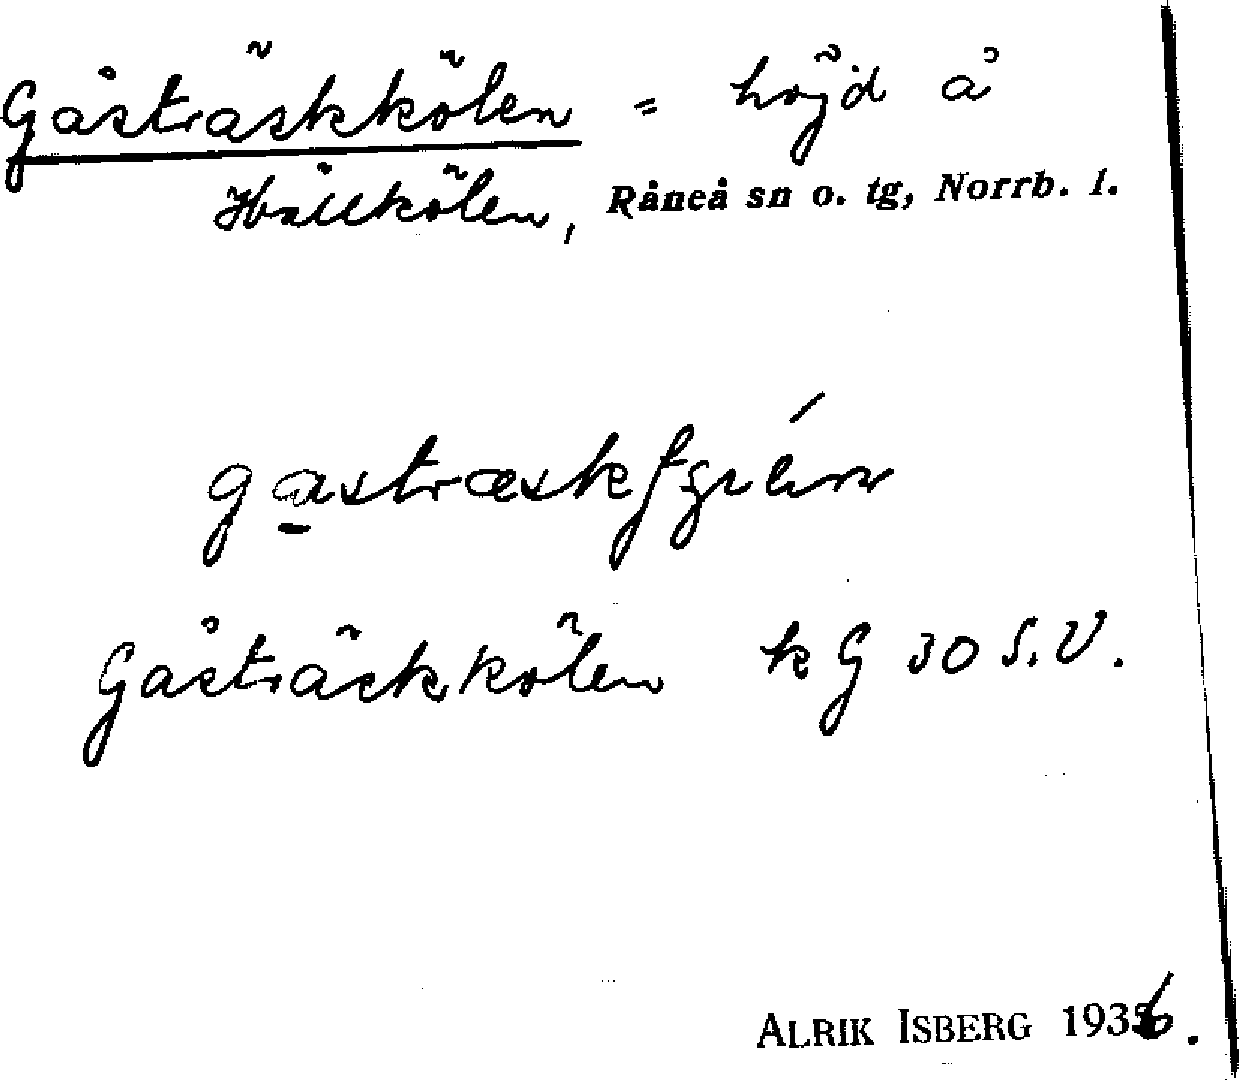 Gåsträskkölen = höjd å
Hällkölen, Råneå sn o. tg, Norrb. l.
Gåsträskkölen kG 30 S.V.
ALRIK ISBERG 1936.